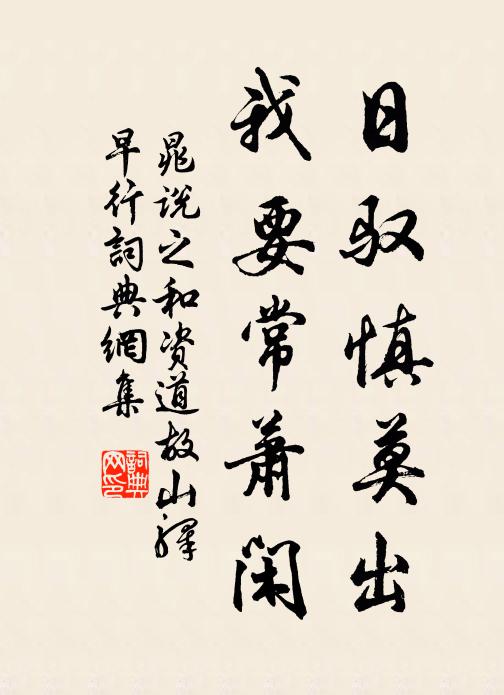 日驭慎莫出
我要常蕭闲
晁说之和资道故山驛
早行詞典網集
詞典
网印